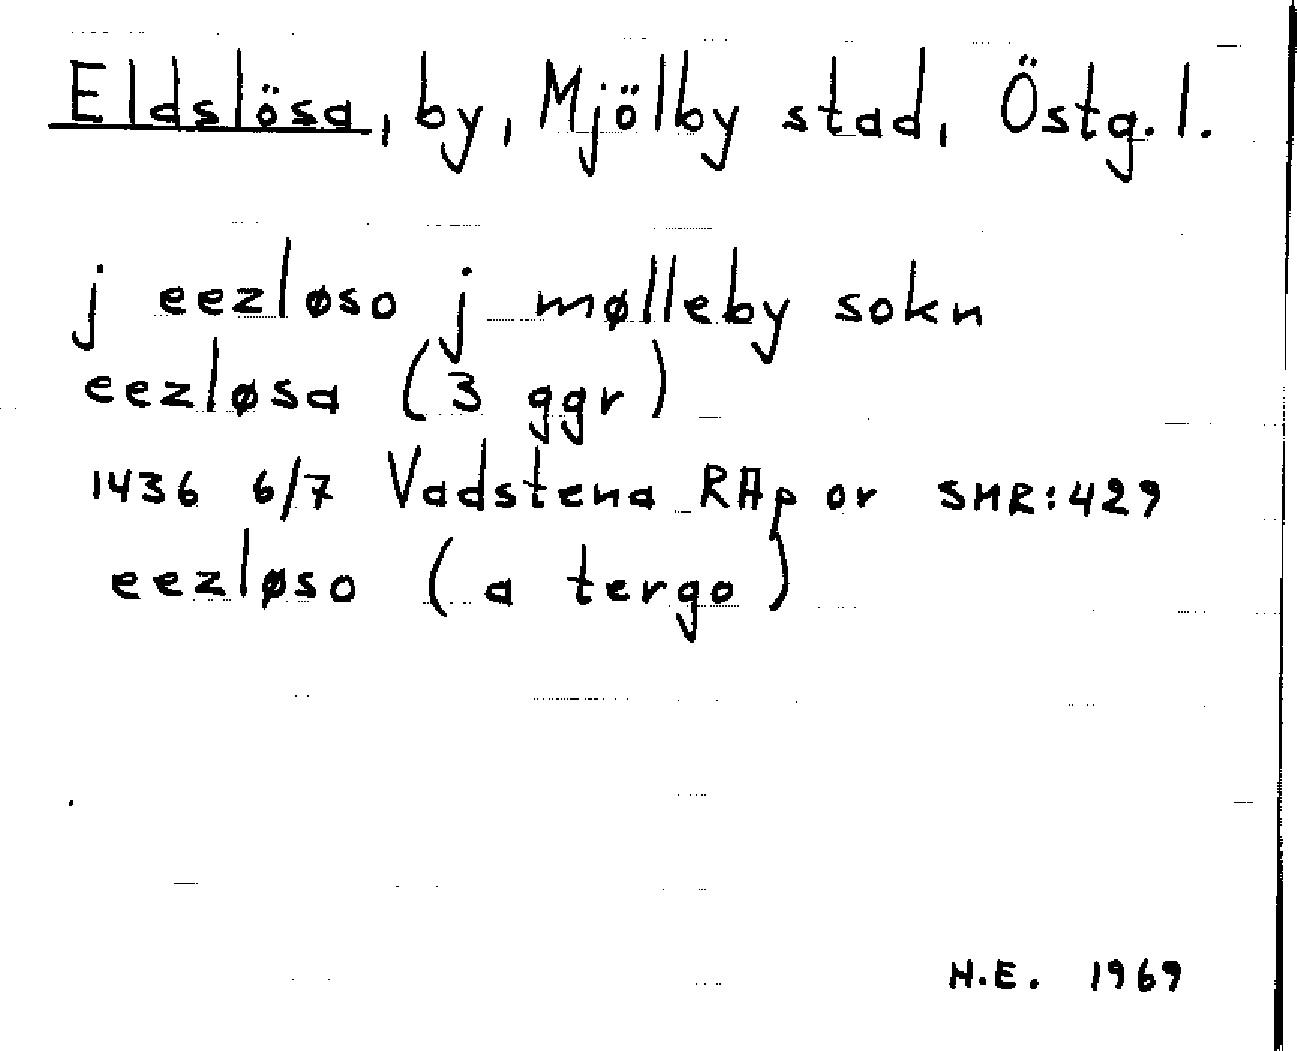 Eldslösa, by, Mjölby stad, Östg.l.
j eezløso j mølleby sokn
eezløsa (3 ggr)
1436 6/7 Vadstena RAp or SMR:429
eezløso (a tergo)
H.E. 1969